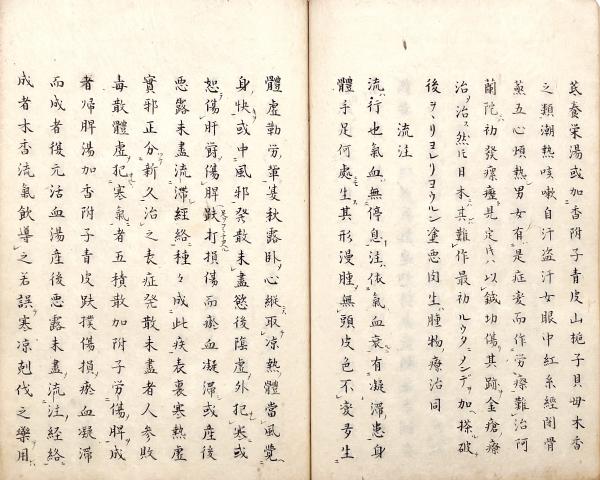 芪養榮湯或加香附子青皮山梔子貝母木香
之類潮熱咳嗽自汗盗汗女眼中紅糸經閉骨
蒸五心煩熱男女有是症変而作労療難治阿
蘭陀初發瘰癧見定以鍼功傷其跡金瘡療
治治然𪜈日本其難作最初ルウタノンデ加搽破
後ヲヽリヨレリヨウルン塗悪肉生腫物療治同
流注
流行也氣血無停息注依氣血衰有凝滞患身
體手足何處生其形漫腫無頭皮色不変多生
體虚勤労軰夏秋露卧心縦取凉熱體當風覺
身快或中風邪發散未盡慾後陰虚外犯寒或
怒傷肝欝傷脾跌打損傷而瘀血凝滞或産後
悪露未盡流滞經絡種々成此疾表裏寒熱虚
實邪正分新久治之表症発散未盡者人参敗
毒散體虚犯寒氣者五積散加附子労傷脾成
者帰脾湯加香附子青皮跌撲傷損瘀血凝滞
而成者復元活血湯産後悪露未盡流注経絡
成者木香流氣飲導之若誤寒凉尅伐之藥用